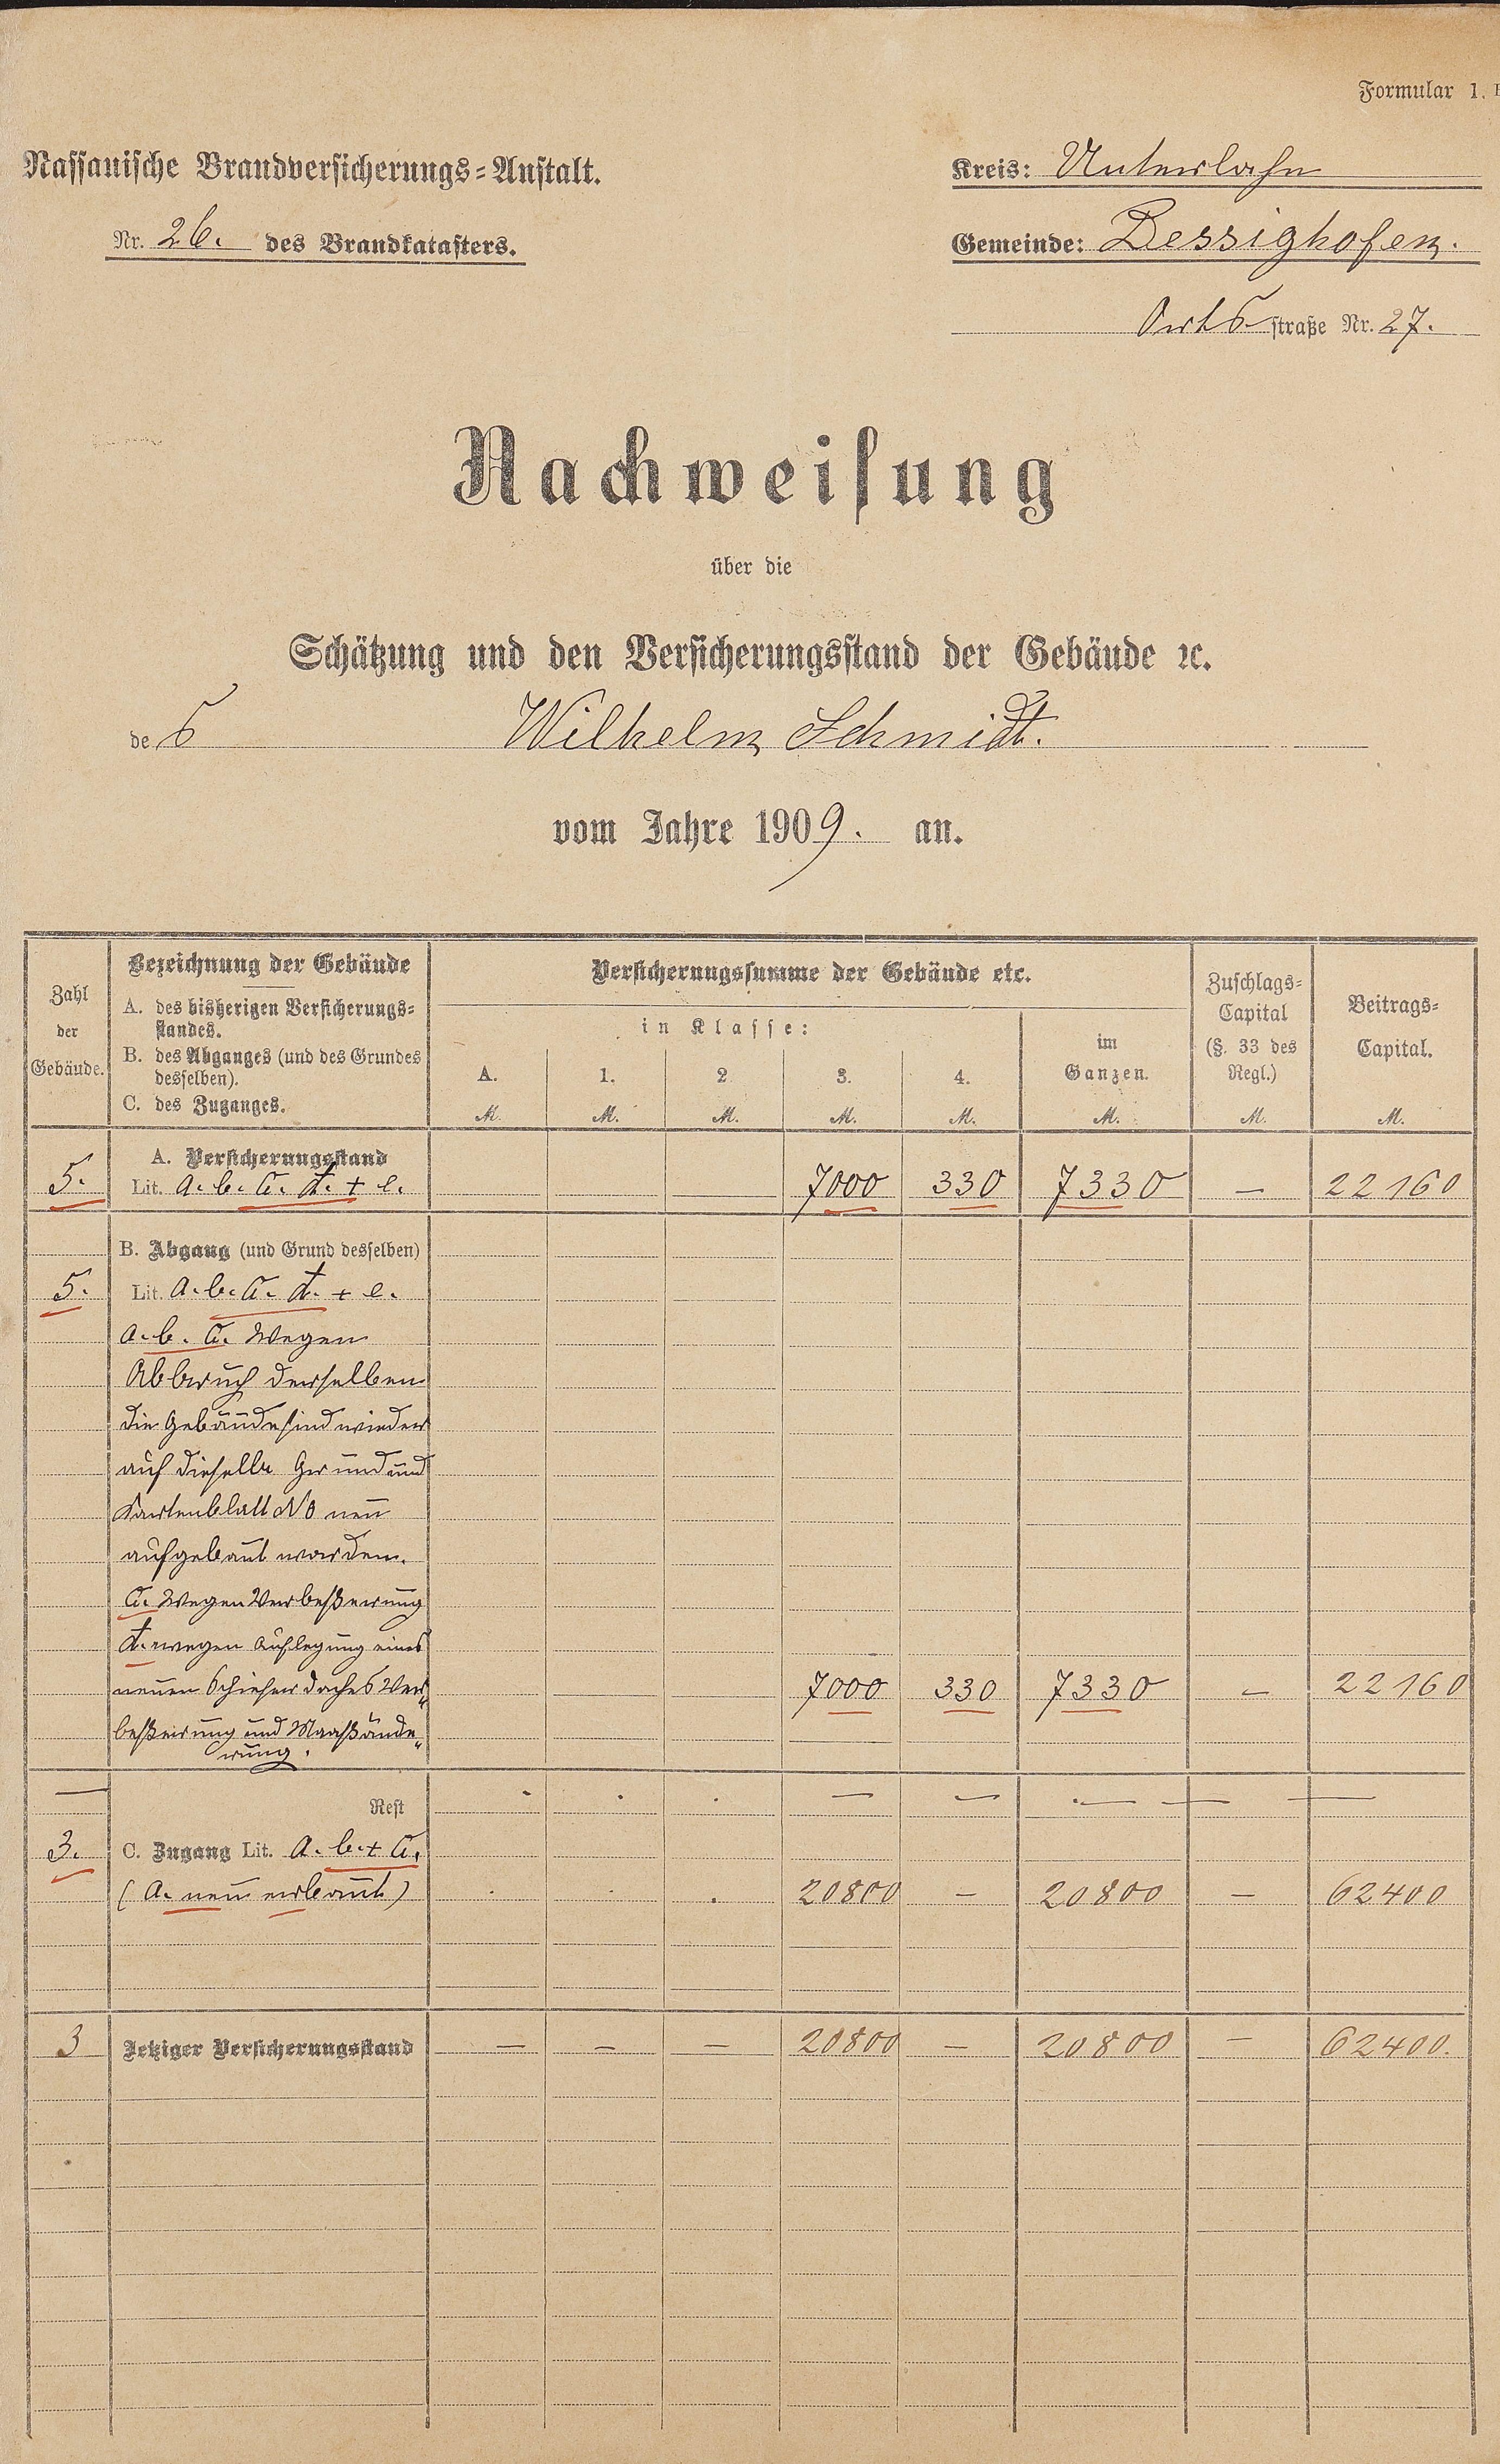 Formular 1.
Nassauische Brandversicherungs-Anstalt.
Nr. 26. des Brandkatasters.
Kreis: Unterlahn
Gemeinde: Dessighofen.
Ortsstraße Nr. 27.
Nachweisung
über die
Schätzung und den Versicherungsstand der Gebäude ꝛc.
des Wilhelm Schmidt.
vom Jahre 1909. an.
Zahl der Gebäude.
Bezeichnung der Gebäude
A. des bisherigen Versicherungs-
standes.
B. des Abganges (und des Grundes
desselben).
C. des Zuganges.
Versicherungssumme der Gebäude etc.
in Klasse:
A. 1. 2 3. 4.
im Ganzen.
Zuschlags-
Capital
(§. 33 des
Regl.)
Beitrags-
Capital.
M. M. M. M. M. M. M. M.
A. Versicherungsstand
5. Lit. a. b. c. d. + e. 7000 330 7330 — 22160
B. Abgang (und Grund desselben)
5. Lit. a. b. c. d. + e.
a. b. c. Wegen
Abbruch derselben
die Gebäude sind wieder
auf dieselbe Grund und
Kartenblatt No neu
aufgebaut worden.
c. Wegen Verbeßerung
d. wegen Auflegung eines
neuen Schieferdaches Ver- 7000 330 7330 — 22160
beßerung und Maaßände-
rung.
— Rest — — — — —
3. C. Zugang Lit. a. b. + c.
(a. neu erbaut) 20800 — 20800 — 62400
3 Jetziger Versicherungsstand — — — 20800 — 20800 — 62400.